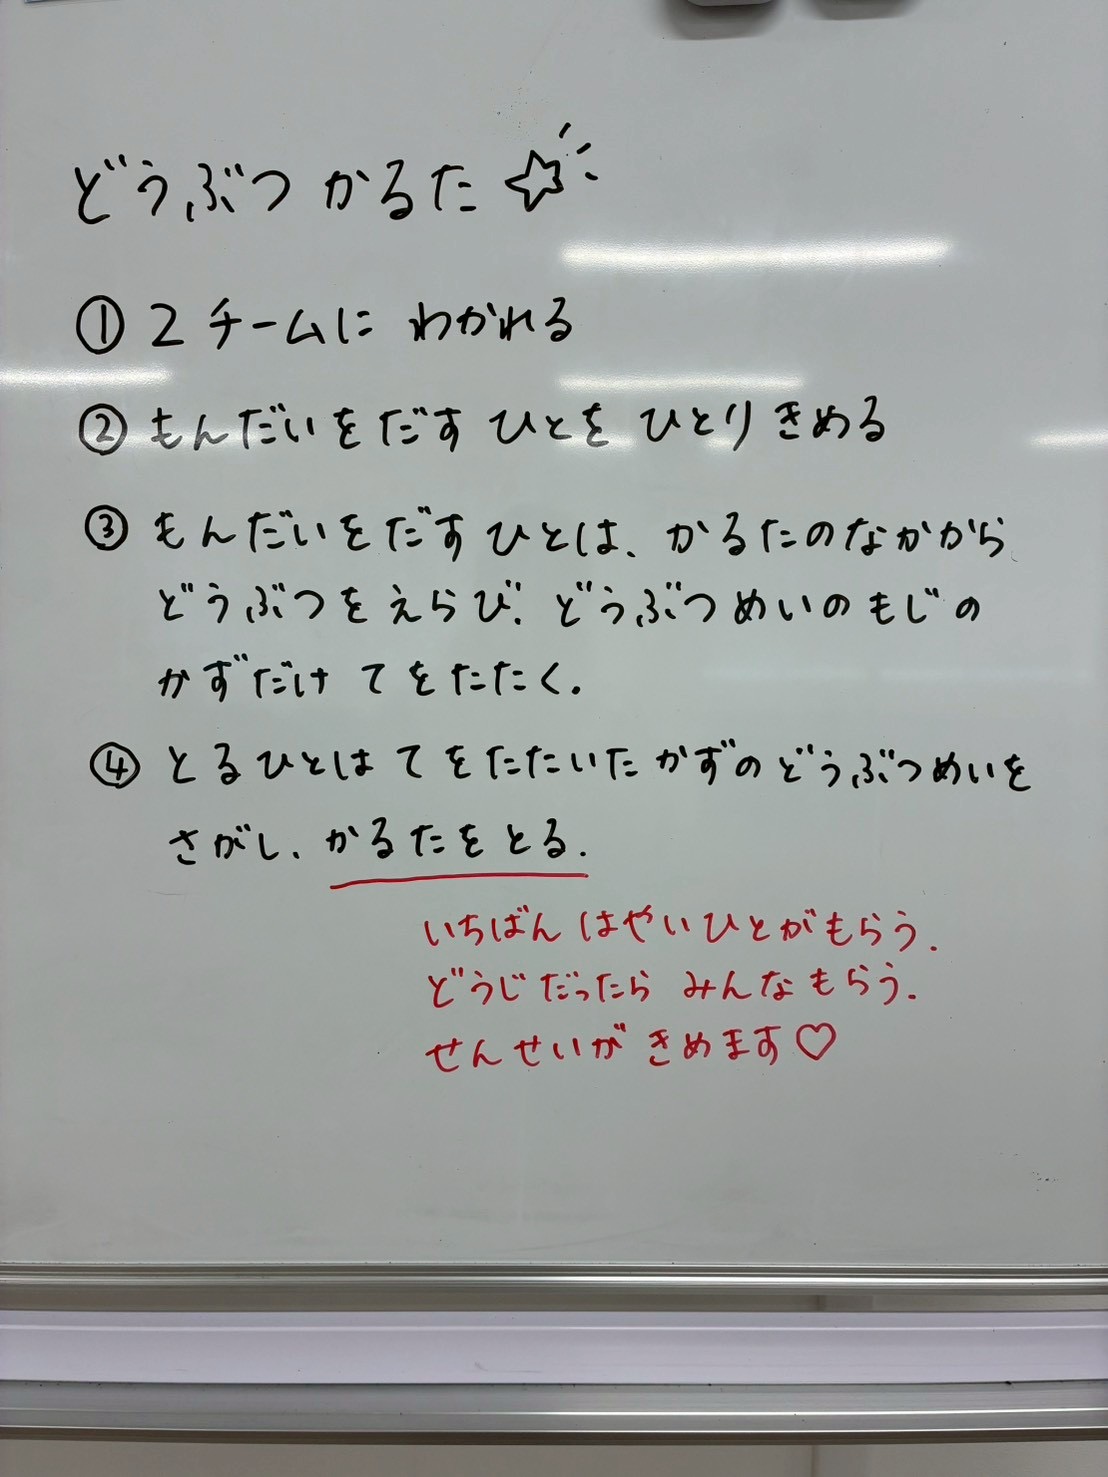 どうぶつ かるた ☆
① 2チームに わかれる
② もんだいをだす ひとを ひとり きめる
③ もんだいをだす ひとは、かるたのなかから
どうぶつをえらび、どうぶつめいのもじの
かずだけ てをたたく。
④ とるひとは てをたたいた かずの どうぶつめいを
さがし、かるたをとる。
いちばん はやいひとがもらう。
どうじだったら みんなもらう。
せんせいが きめます♡